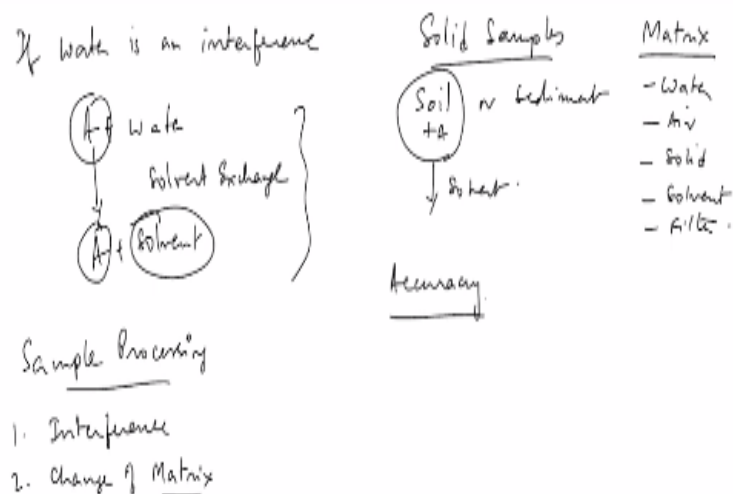 If water is an interference
A + water
Solvent Exchange
A + Solvent
Sample Processing
1. Interference
2. Change of Matrix
Solid Samples
Soil
+A
or Sediment
Solvent.
Accuracy
Matrix
- Water
- Air
- Solid
- Solvent
- Filter.